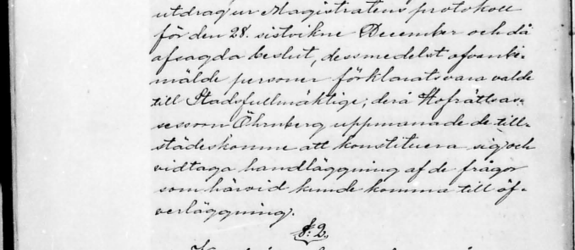 utdrag ur Magistratens protokoll
för den 28. sistvikne December och då
afsagda beslut, dessmedelst ofvanbe-
mälde personer förklarats vara valde
till Stadsfullmäktige; derå Hofrättsas-
sessorn Öhrnberg uppmanade de till-
städeskomne att konstituera sig och
vidtaga handläggning af de frågor
som härvid kunde komma till öf-
verläggning.
§. 2.